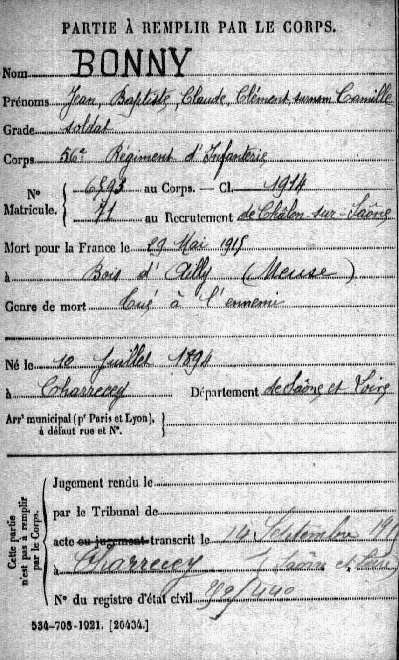 PARTIE À REMPLIR PAR LE CORPS.
Nom BONNY
Prénoms Jean, Baptiste, Claude, Clément, surnom Camille
Grade soldat
Corps 56e Régiment d'Infanterie
N° Matricule. { 6893 au Corps. — Cl. 1914
71 au Recrutement de Châlon-sur-Saône
Mort pour la France le 29 Mai 1915
à Bois d'Ailly (Meuse)
Genre de mort Tué à l'ennemi
Né le 10 Juillet 1894
à Charrecey Département de Saône et Loire
Arrt municipal (pr Paris et Lyon), à défaut rue et N°. }
Cette partie n'est pas à remplir par le Corps.
Jugement rendu le
par le Tribunal de
acte ou jugement transcrit le 14 Septembre
à Charrecey (Saône et Loire
N° du registre d'état civil
534-708-1921. [20434.]